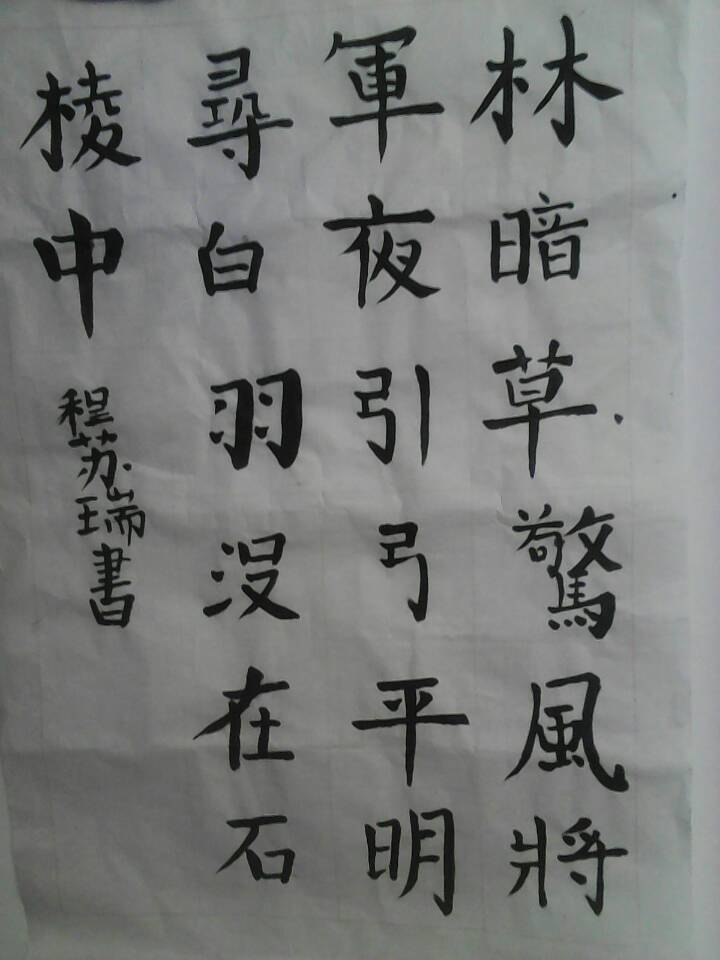 林暗草驚風將
軍夜引弓平明
尋白羽沒在石
棱中
程苏瑞書